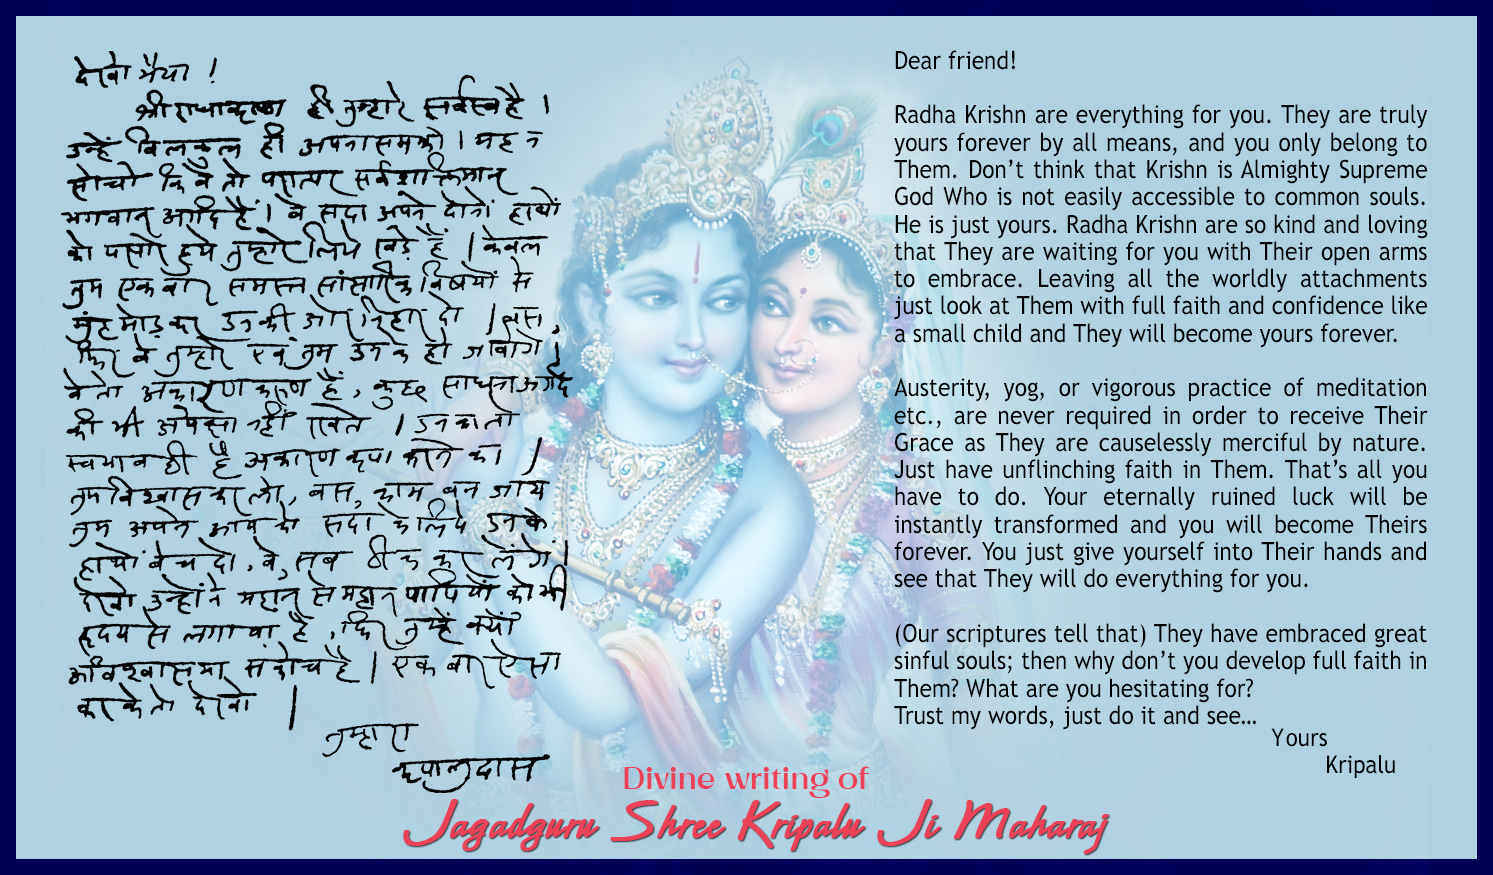 देखो भैया !
श्री राधाकृष्ण ही तुम्हारे सर्वस्व है ।
उन्हें बिलकुल ही अपना समझो । यह न
सोचो कि वे तो परात्पर सर्वशक्तिमान्
भगवान् आदि हैं । वे सदा अपने दोनों हाथों
को पसारे हुये तुम्हारे लिये खड़े हैं । केवल
तुम एक बार समस्त सांसारिक विषयों से
मुंह मोड़कर उनकी ओर निहार दो । बस,
फिर वे तुम्हारे एवं तुम उनके हो जावोगे ।
वे तो अकारण करुण हैं, कुछ साधना आदि
की भी अपेक्षा नहीं रखते । उनका तो
स्वभाव ही है अकारण कृपा करने का ।
तुम विश्वास कर लो, बस, काम बन जाय
तुम अपने आप को सदा के लिये उनके
हाथों बेच दो, वे, सब ठीक कर लेंगे ।
देखो उन्होंने महान् से महान् पापियों को भी
हृदय से लगाया है, फिर तुम्हें क्यों
अविश्वास या संकोच है । एक बार ऐसा
करके तो देखो ।
तुम्हारा
कृपालुदास
Dear friend!
Radha Krishn are everything for you. They are truly
yours forever by all means, and you only belong to
Them. Don’t think that Krishn is Almighty Supreme
God Who is not easily accessible to common souls.
He is just yours. Radha Krishn are so kind and loving
that They are waiting for you with Their open arms
to embrace. Leaving all the worldly attachments
just look at Them with full faith and confidence like
a small child and They will become yours forever.
Austerity, yog, or vigorous practice of meditation
etc., are never required in order to receive Their
Grace as They are causelessly merciful by nature.
Just have unflinching faith in Them. That’s all you
have to do. Your eternally ruined luck will be
instantly transformed and you will become Theirs
forever. You just give yourself into Their hands and
see that They will do everything for you.
(Our scriptures tell that) They have embraced great
sinful souls; then why don’t you develop full faith in
Them? What are you hesitating for?
Trust my words, just do it and see…
Yours
Kripalu
Divine writing of
Jagadguru Shree Kripalu Ji Maharaj